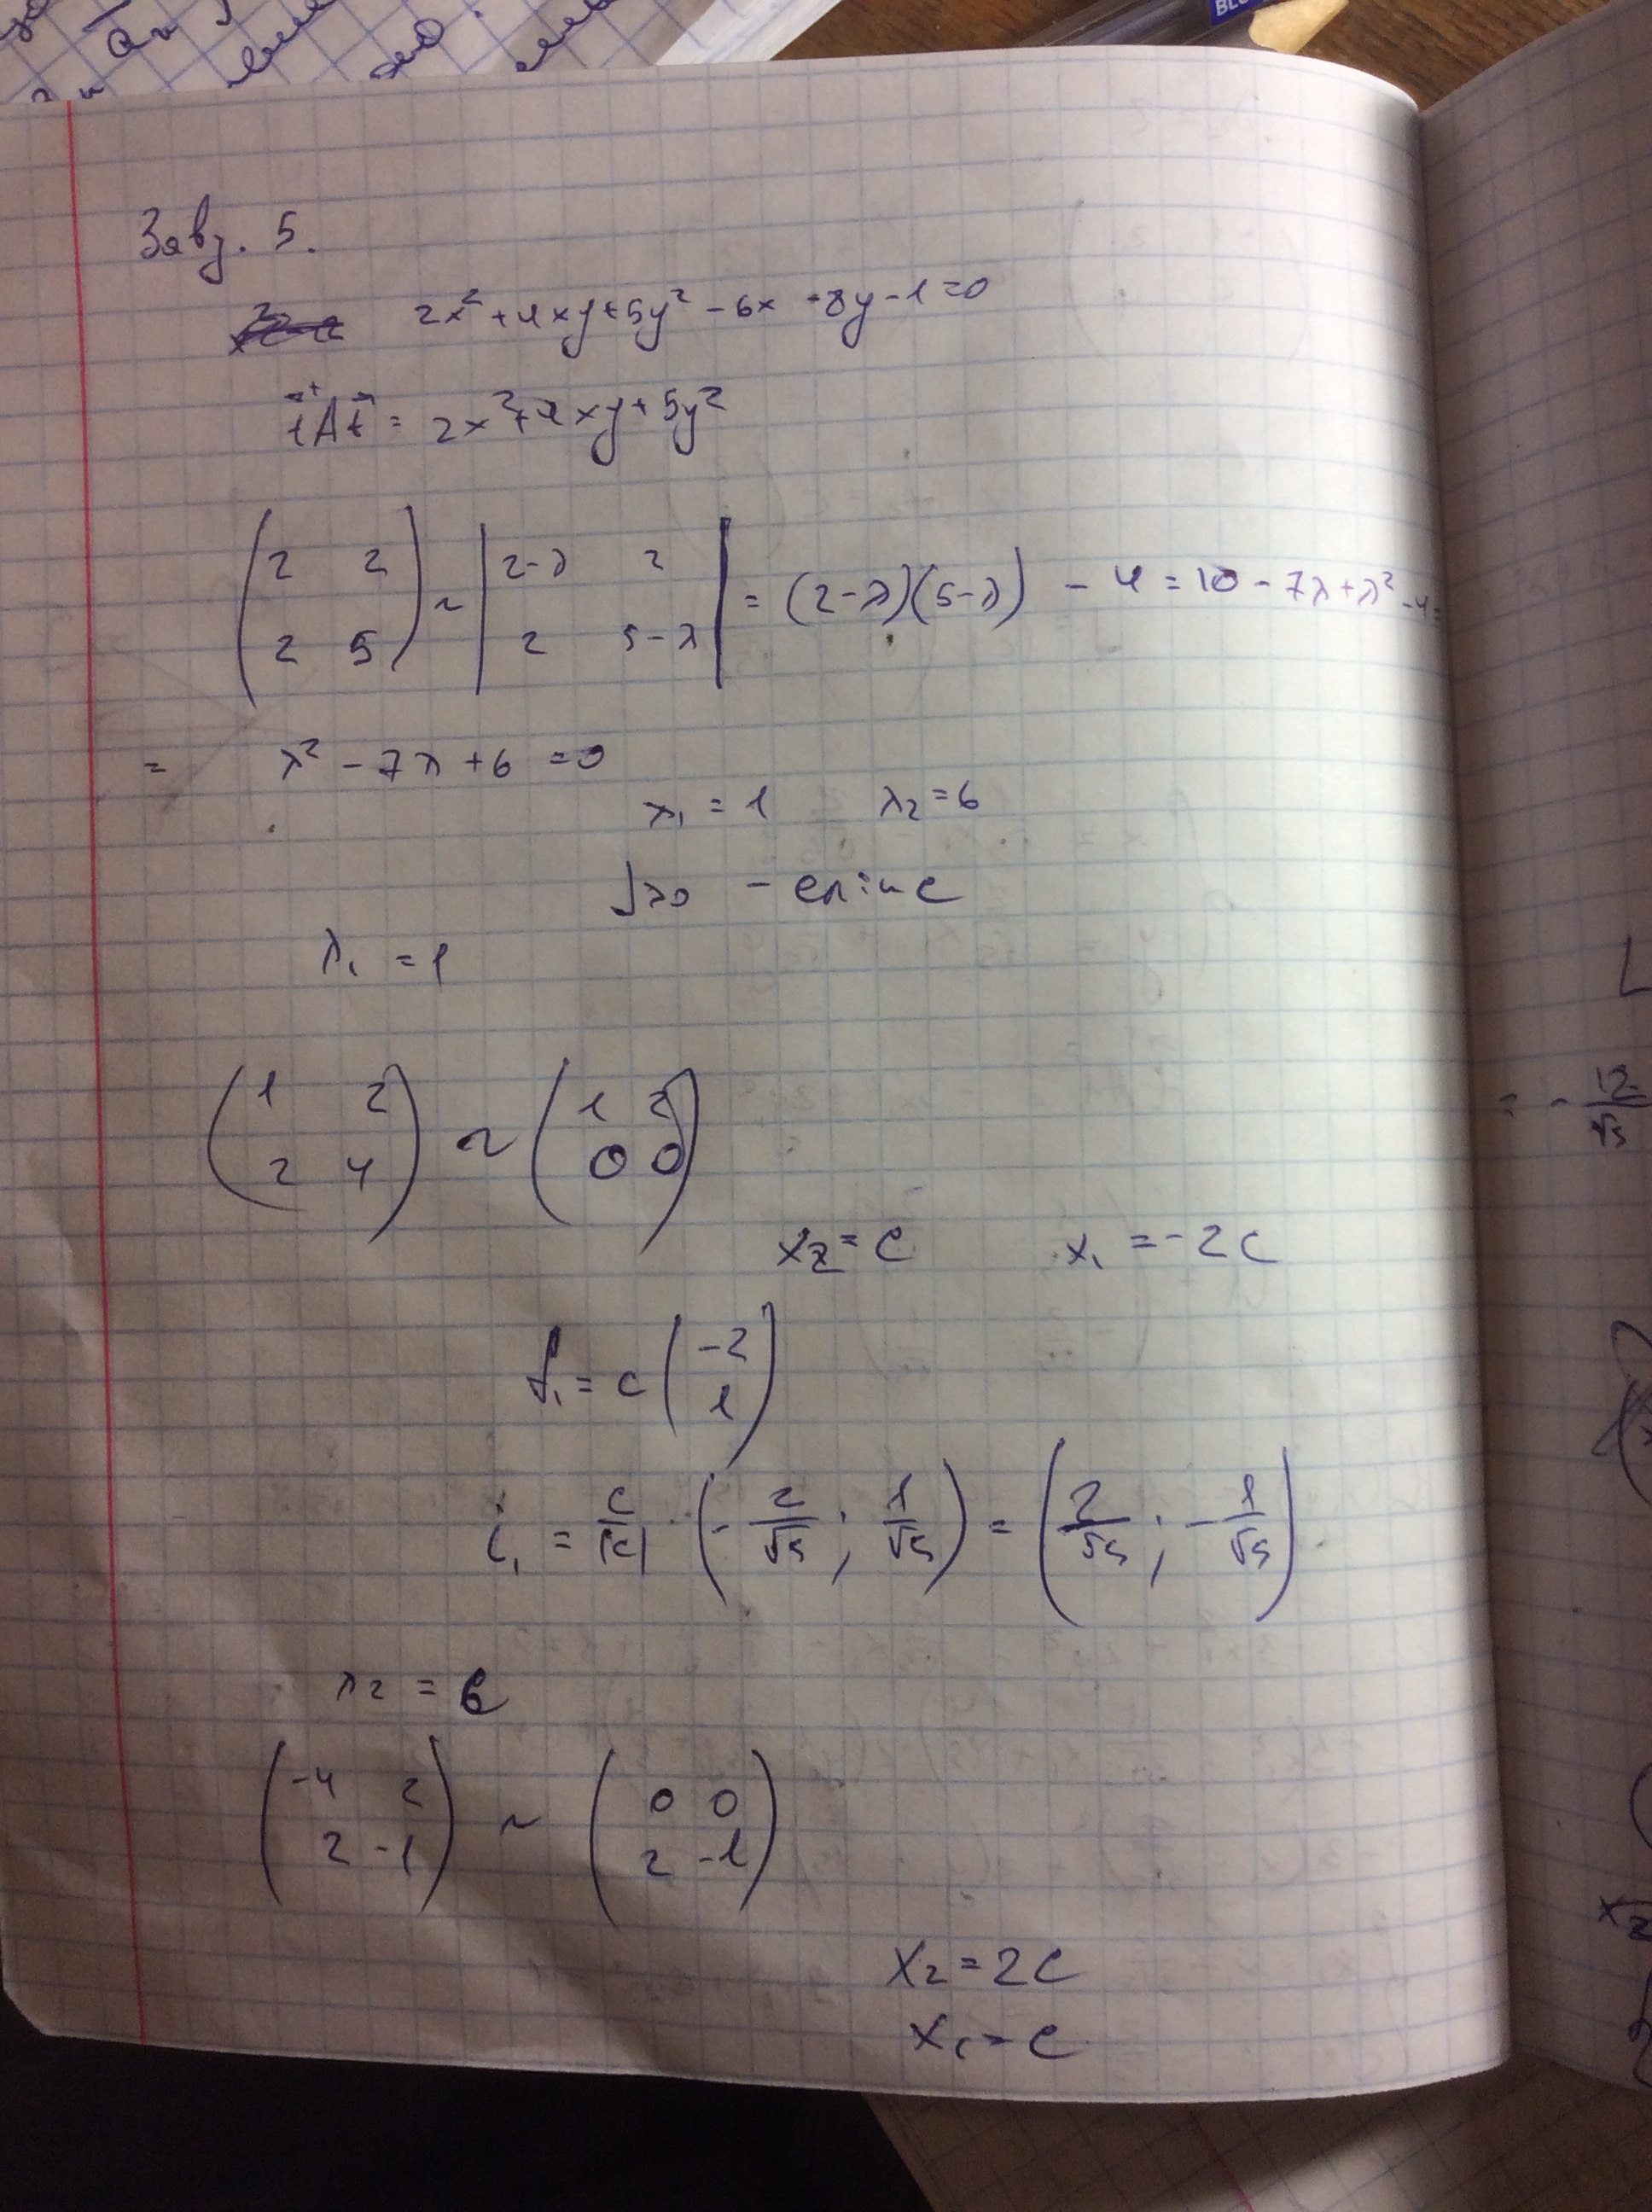 Завд. 5.
2x² + 4xy + 5y² - 6x - 8y - 1 = 0
t⃗⁺At⃗ = 2x² + 4xy + 5y²
(2 2; 2 5) ~ |2-λ 2; 2 5-λ| = (2-λ)(5-λ) - 4 = 10 - 7λ + λ² - 4 =
= λ² - 7λ + 6 = 0
λ₁ = 1 λ₂ = 6
J>0 - еліпс
λ₁ = 1
(1 2; 2 4) ~ (1 2; 0 0)
x₂ = c x₁ = -2c
f₁ = c (-2; 1)
i₁ = c/|c| · (-2/√5 ; 1/√5) = (2/√5 ; -1/√5)
λ₂ = 6
(-4 2; 2 -1) ~ (0 0; 2 -1)
x₂ = 2c
x₁ = c
= - 12/√5